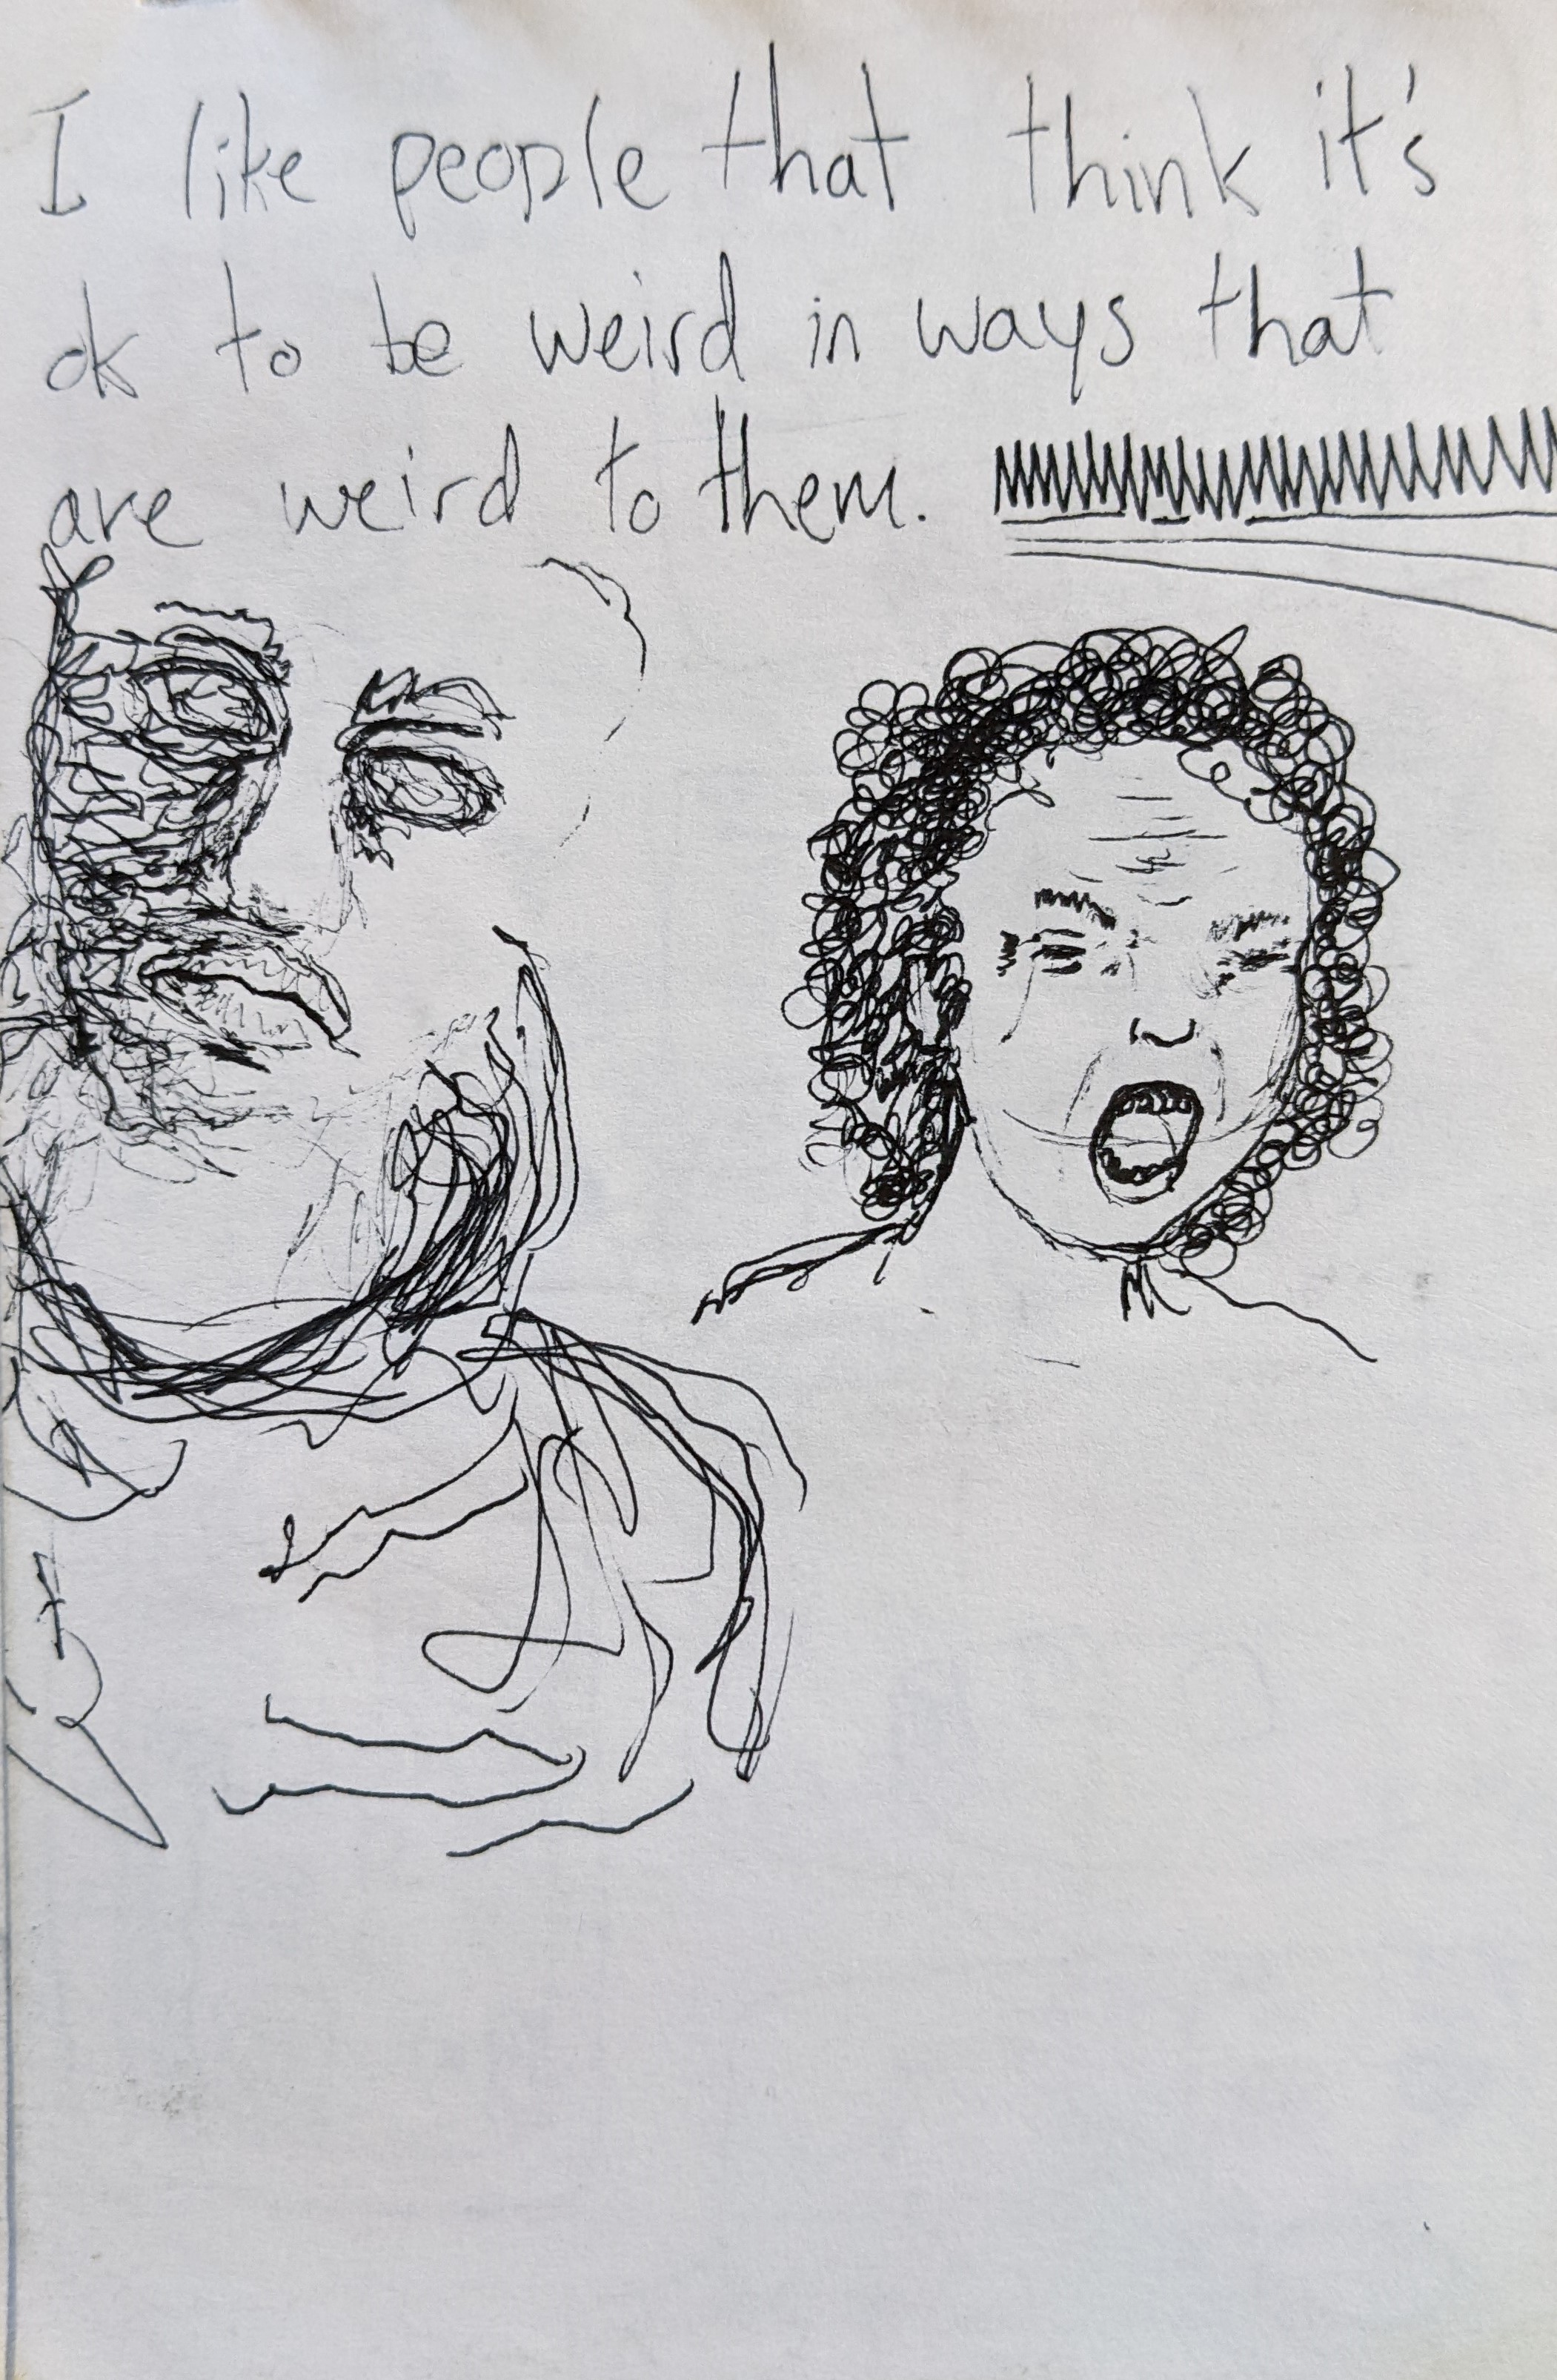 I like people that think it's
ok to be weird in ways that
are weird to them.